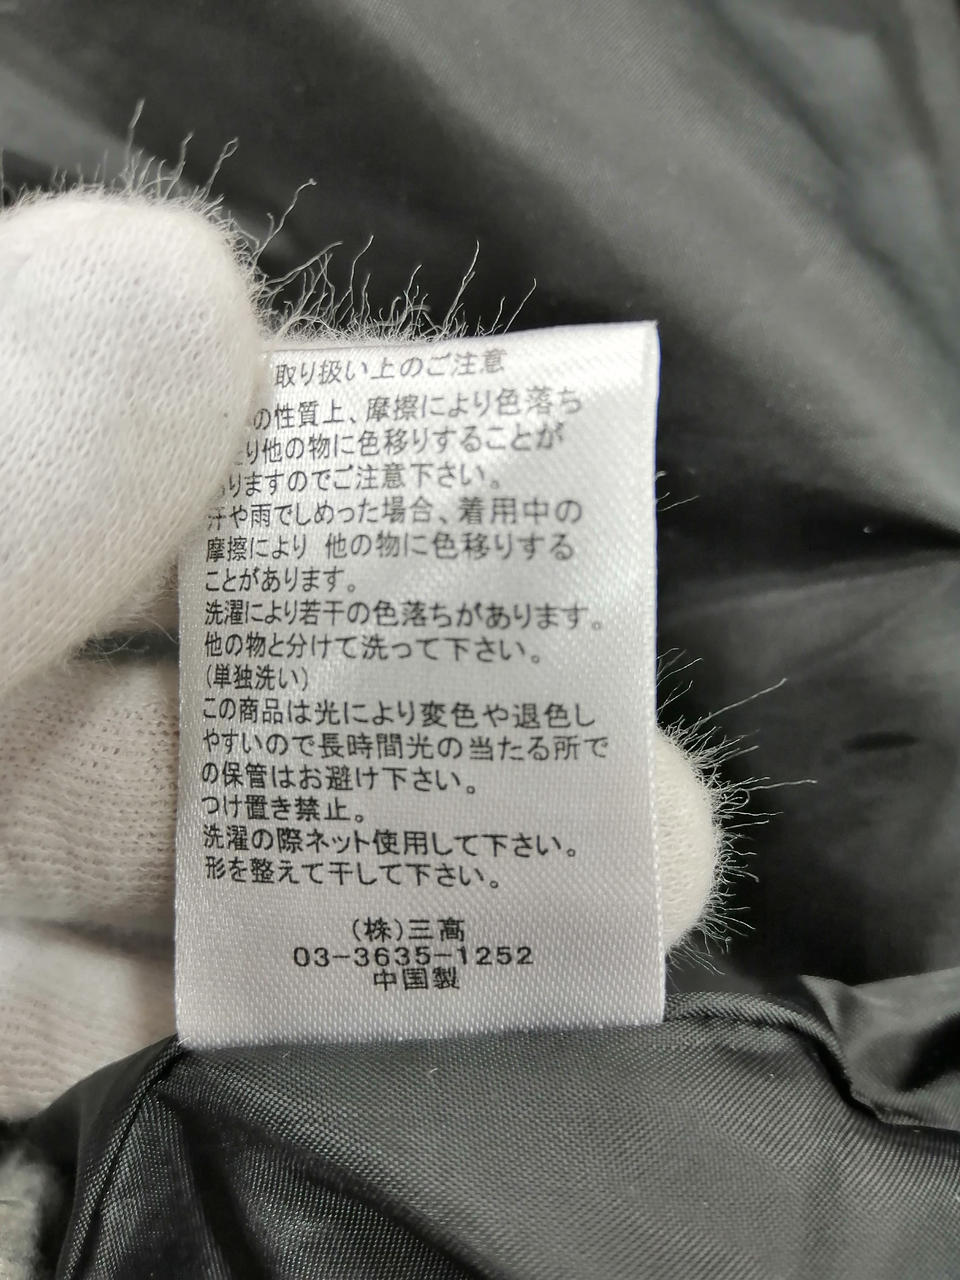 取り扱い上のご注意
の性質上、摩擦により色落ち
り他の物に色移りすることが
りますのでご注意下さい。
汗や雨でしめった場合、着用中の
摩擦により 他の物に色移りする
ことがあります。
洗濯により若干の色落ちがあります。
他の物と分けて洗って下さい。
(単独洗い)
この商品は光により変色や退色し
やすいので長時間光の当たる所で
の保管はお避け下さい。
つけ置き禁止。
洗濯の際ネット使用して下さい。
形を整えて干して下さい。
(株)三高
03-3635-1252
中国製